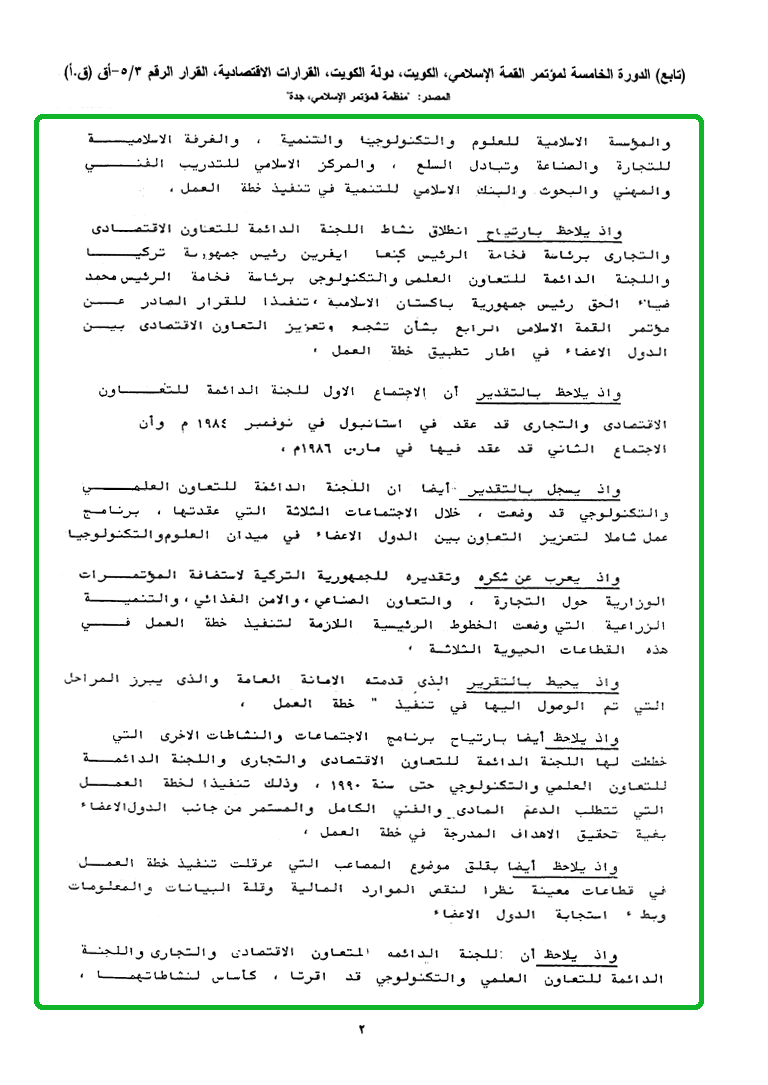 (تابع) الدورة الخامسة لمؤتمر القمة الإسلامي، الكويت، دولة الكويت، القرارات الاقتصادية، القرار الرقم ٥/٣-أق (ق.أ)
المصدر: "منظمة المؤتمر الإسلامي، جدة"
والمؤسسة الاسلامية للعلوم والتكنولوجيا والتنمية ، والغرفة الاسلامية
للتجارة والصناعة وتبادل السلع ، والمركز الاسلامي للتدريب الفني
والمهني والبحوث والبنك الاسلامي للتنمية في تنفيذ خطة العمل ،
واذ يلاحظ بارتياح انطلاق نشاط اللجنة الدائمة للتعاون الاقتصادى
والتجارى برئاسة فخامة الرئيس كنعا ايفرين رئيس جمهورية تركيا
واللجنة الدائمة للتعاون العلمى والتكنولوجى برئاسة فخامة الرئيس محمد
ضياء الحق رئيس جمهورية باكستان الاسلامية ،تنفيذا للقرار الصادر عن
مؤتمر القمة الاسلامى الرابع بشأن تشجيع وتعزيز التعاون الاقتصادى بين
الدول الاعضاء في اطار تطبيق خطة العمل ،
واذ يلاحظ بالتقدير أن الاجتماع الاول للجنة الدائمة للتعاون
الاقتصادى والتجارى قد عقد في استانبول في نوفمبر ١٩٨٤ م وأن
الاجتماع الثاني قد عقد فيها في مارس ١٩٨٦م ،
واذ يسجل بالتقدير أيضا ان اللجنة الدائمة للتعاون العلمي
والتكنولوجي قد وضعت ، خلال الاجتماعات الثلاثة التي عقدتها ، برنامج
عمل شاملا لتعزيز التعاون بين الدول الاعضاء في ميدان العلوم والتكنولوجيا
واذ يعرب عن شكره وتقديره للجمهورية التركية لاستضافة المؤتمرات
الوزارية حول التجارة ، والتعاون الصناعي ،والامن الغذائي ،والتنمية
الزراعية التي وضعت الخطوط الرئيسية اللازمة لتنفيذ خطة العمل في
هذه القطاعات الحيوية الثلاثة ،
واذ يحيط بالتقرير الذى قدمته الامانة العامة والذى يبرز المراحل
التي تم الوصول اليها في تنفيذ " خطة العمل ،
واذ يلاحظ أيضا بارتياح برنامج الاجتماعات والنشاطات الاخرى التي
خططت لها اللجنة الدائمة للتعاون الاقتصادى والتجارى واللجنة الدائمة
للتعاون العلمي والتكنولوجي حتى سنة ١٩٩٠ ، وذلك تنفيذا لخطة العمل
التي تتطلب الدعم المادى والفني الكامل والمستمر من جانب الدول الاعضاء
بغية تحقيق الاهداف المدرجة في خطة العمل ،
واذ يلاحظ أيضا بقلق موضوع المصاعب التي عرقلت تنفيذ خطة العمل
في قطاعات معينة نظرا لنقص الموارد المالية وقلة البيانات والمعلومات
وبطء استجابة الدول الاعضاء
واذ يلاحظ أن اللجنة الدائمه للتعاون الاقتصادى والتجارى واللجنة
الدائمة للتعاون العلمي والتكنولوجي قد اقرتا ، كأساس لنشاطاتهما ،
٢